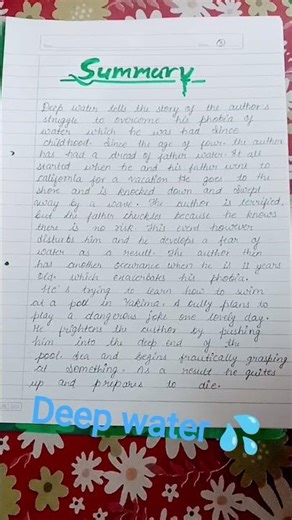 Summary
Deep water tells the story of the author's
struggle to overcome his phobia of
water which he was had since
childhood. Since the age of four the author
has had a dread of father water. It all
started when he and his father went to
california for a vacation. He goes to the
shore and is knocked down and swept
away by a wave. The author is terrified,
but the father chuckles because he knows
there is no risk. This event however
disturbs him and he develops a fear of
water as a result. The author then
has another occurance when he is 11 years
old. which exacerbates his phobia.
He's trying to learn how to swim
at a pool in Yakima. A bully plans to
play a dangerous joke one lovely day.
He frightens the author by pushing
him into the deep end of the
pool. and begins frantically grasping
at something. As a result he quites
up and prepares to die.
Deep water 💦